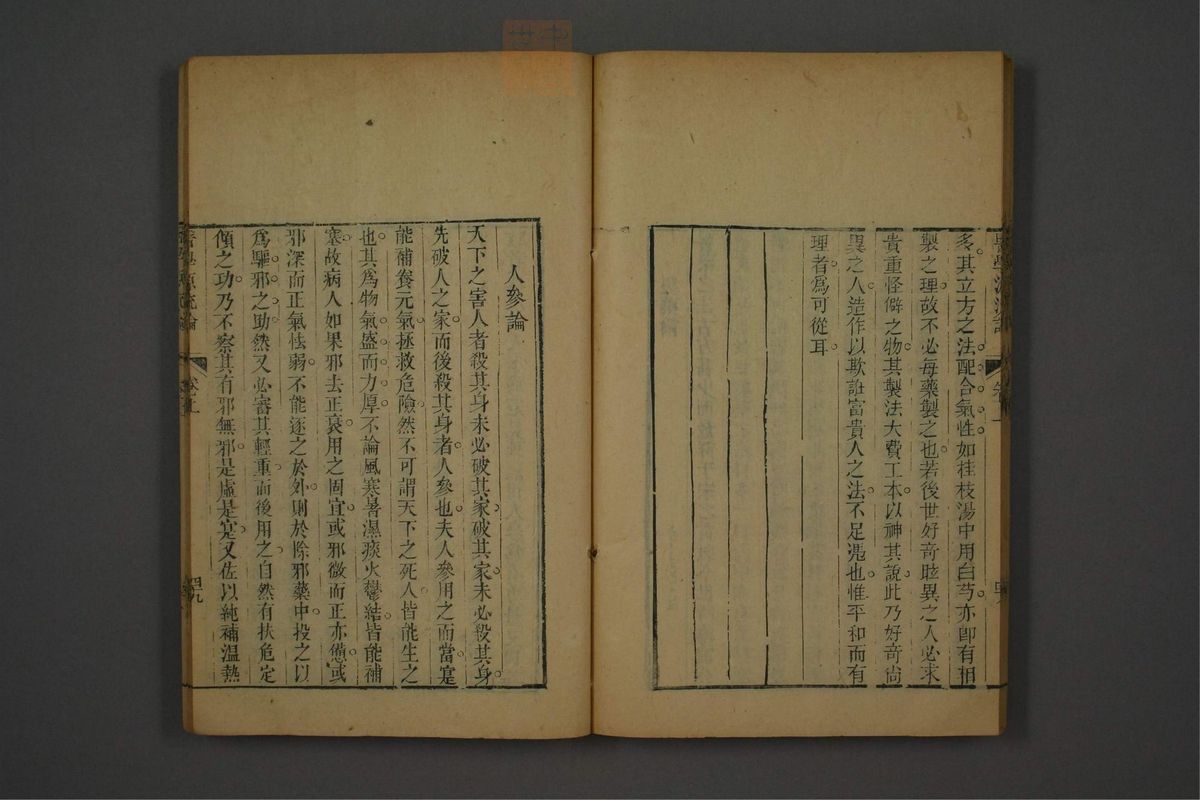 多其立方之法配合氣性如桂枝湯中用白芍亦卽有相
製之理故不必每藥製之也若後世好奇眩異之人必求
貴重怪僻之物其製法大費工本以神其說此乃好奇尚
異之人造作以欺誑富貴人之法不足憑也惟平和而有
理者爲可從耳
人參論
天下之害人者殺其身未必破其家破其家未必殺其身
先破人之家而後殺其身者人參也夫人參用之而當寔
能補養元氣拯救危險然不可謂天下之死人皆能生之
也其爲物氣盛而力厚不論風寒暑濕痰火鬱結皆能補
塞故病人如果邪去正衰用之固宜或邪微而正亦憊或
邪深而正氣怯弱不能逐之於外則於除邪藥中投之以
爲驅邪之助然又必審其輕重而後用之自然有扶危定
傾之功乃不察其有邪無邪是虛是寔又佐以純補温熱
醫學源流論
卷上
四九